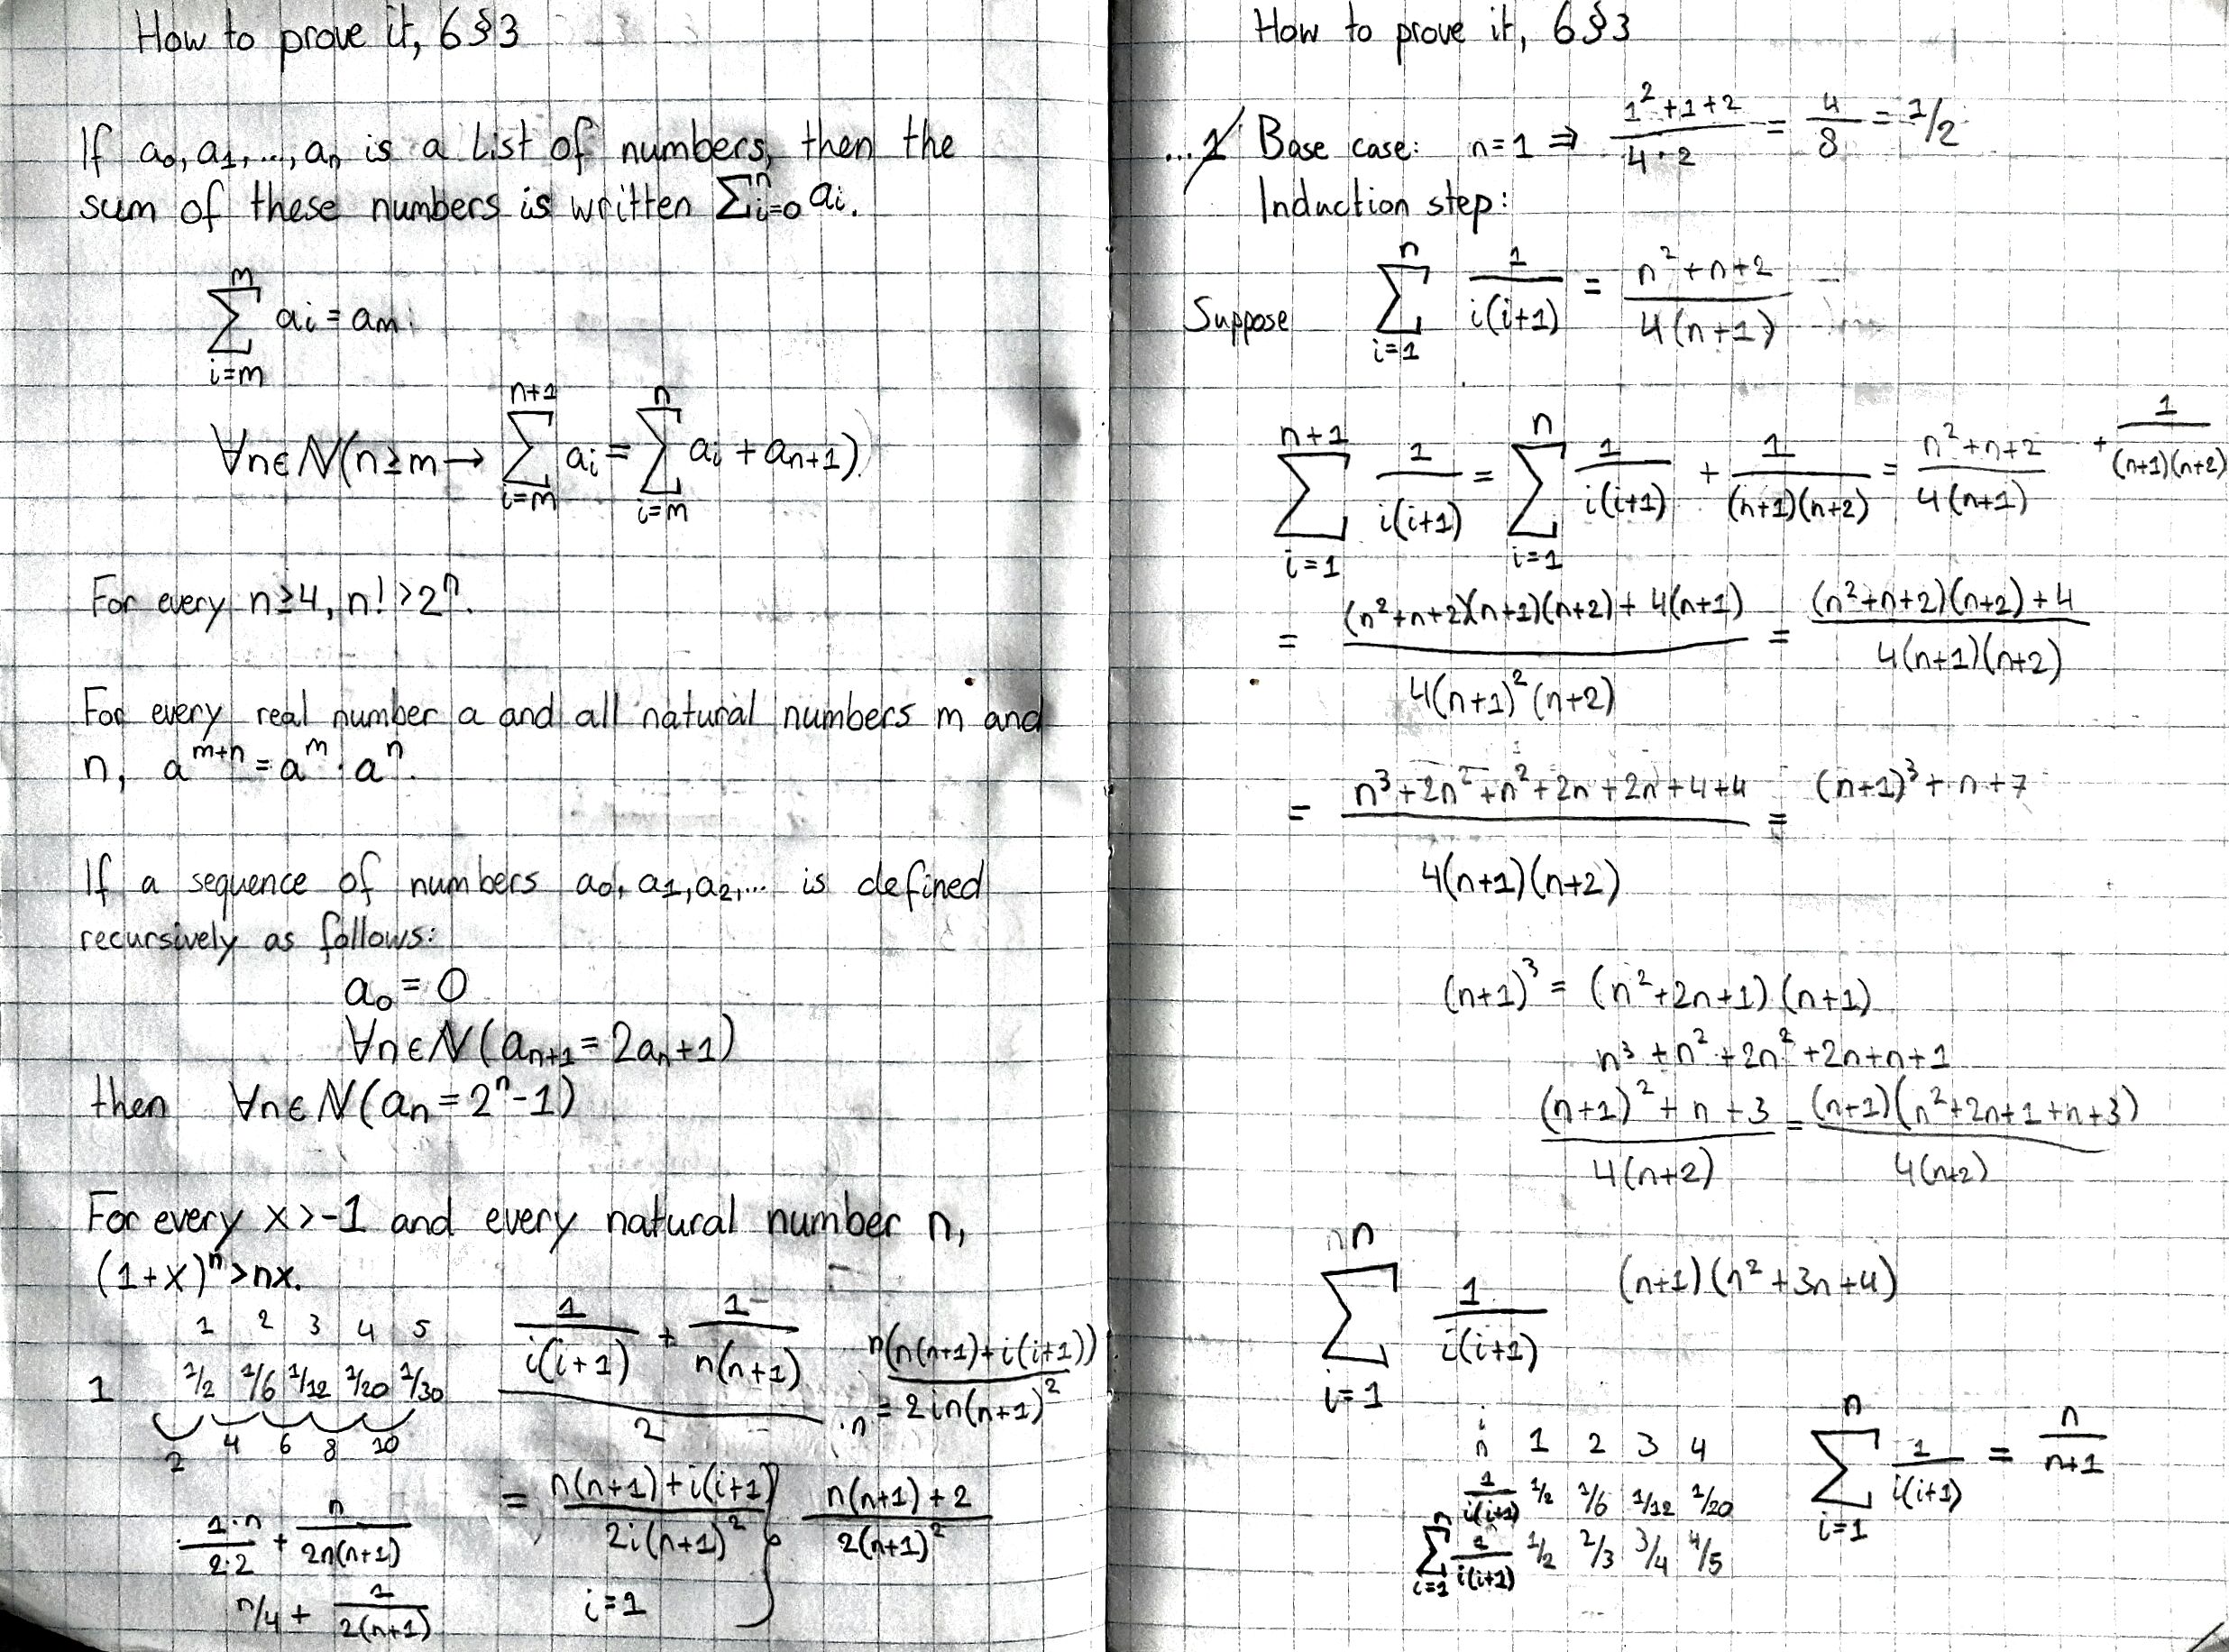 How to prove it, 6§3
If a₀, a₁, ..., aₙ is a list of numbers, then the
sum of these numbers is written ∑ⁿᵢ₌₀ aᵢ.
∑_{i=m}^{m} aᵢ = aₘ
∀n∈ℕ(n≥m → ∑_{i=m}^{n+1} aᵢ = ∑_{i=m}^{n} aᵢ + a_{n+1})
For every n≥4, n! > 2ⁿ.
For every real number a and all natural numbers m and
n, a^{m+n} = a^m · a^n.
If a sequence of numbers a₀, a₁, a₂, ... is defined
recursively as follows:
a₀ = 0
∀n∈ℕ(a_{n+1} = 2aₙ+1)
then ∀n∈ℕ(aₙ = 2ⁿ-1)
For every x>-1 and every natural number n,
(1+x)ⁿ > nx.
1 2 3 4 5
1 1/2 1/6 1/12 1/20 1/30
2 4 6 8 10
(1/(i(i+1)) + 1/(n(n+1)))/2 · n = n(n(n+1)+i(i+1))/(2in(n+1)²)
(1·n)/(2·2) + n/(2n(n+1))
= (n(n+1)+i(i+1))/(2i(n+1)²) } (n(n+1)+2)/(2(n+1)²)
n/4 + 1/(2(n+1))
i=1
How to prove it, 6§3
...1 Base case: n=1 ⇒ (1²+1+2)/(4·2) = 4/8 = 1/2
Induction step:
Suppose ∑_{i=1}^{n} 1/(i(i+1)) = (n²+n+2)/(4(n+1))
∑_{i=1}^{n+1} 1/(i(i+1)) = ∑_{i=1}^{n} 1/(i(i+1)) + 1/((n+1)(n+2)) = (n²+n+2)/(4(n+1)) + 1/((n+1)(n+2))
= ((n²+n+2)(n+1)(n+2)+4(n+1))/(4(n+1)²(n+2)) = ((n²+n+2)(n+2)+4)/(4(n+1)(n+2))
= (n³+2n²+n²+2n+2n+4+4)/(4(n+1)(n+2)) = (n+1)³+n+7
(n+1)³ = (n²+2n+1)(n+1)
n³+n²+2n²+2n+n+1
((n+1)²+n+3)/(4(n+2)) = ((n+1)(n²+2n+1+n+3))/(4(n+2))
∑_{i=1}^{nn} 1/(i(i+1)) (n+1)(n²+3n+4)
i
n 1 2 3 4
1/(i(i+1)) 1/2 1/6 1/12 1/20
∑_{i=1}^{n} 1/(i(i+1)) 1/2 2/3 3/4 4/5
∑_{i=1}^{n} 1/(i(i+1)) = n/(n+1)